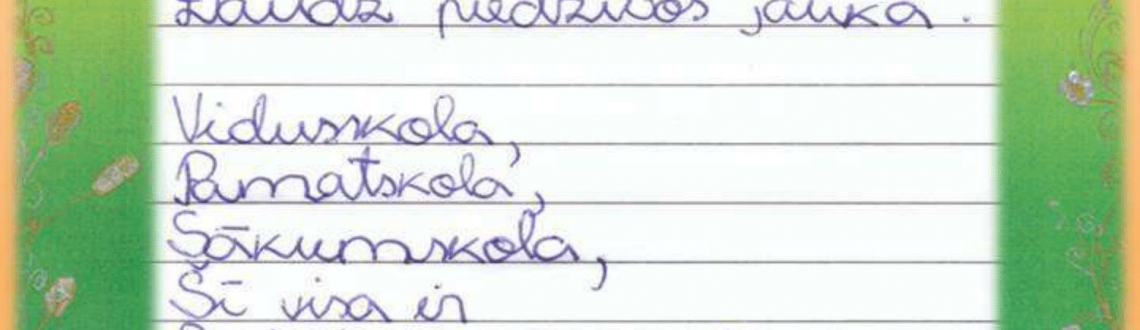 Daudz piedzīvos jauka.
Vidusskola,
Pamatskola,
Sākumskola,
Šī visa ir